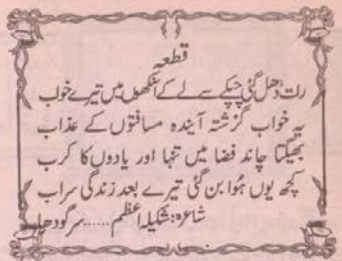 قطعہ
رات ڈھل گئی چپکے سے لے کے آنکھوں میں تیرے خواب
یہ خواب گزشتہ آیندہ مسافتوں کے عذاب
بھیگتا چاند فضا میں تنہا اور یادوں کا کرب
کچھ یوں ہوا بن گئی تیرے بعد زندگی سراب
شاعرہ: شکیلہ اعظم......سرگودھا